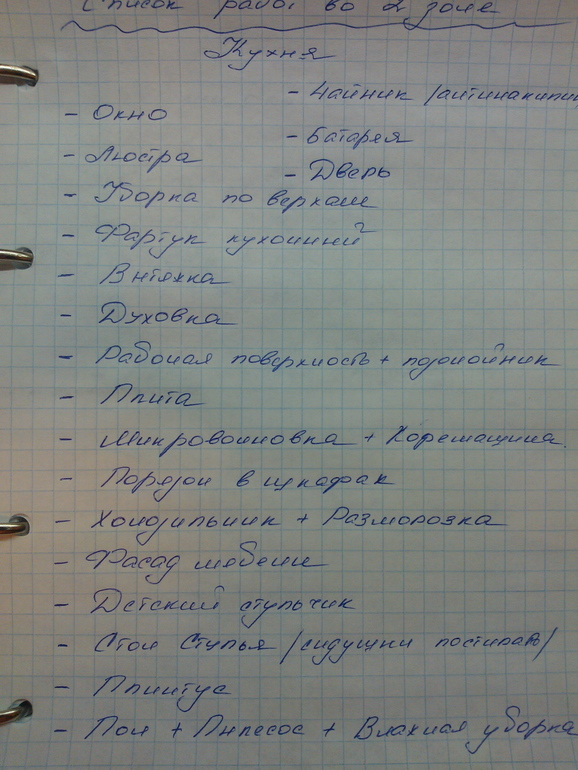 Список работ во 2 зоне
Кухня
- Чайник /антинакипин
- Окно
- Батарея
- Люстра
- Дверь
- Уборка по верхам
- Фартук кухонний
- Витяжка
- Духовка
- Рабочая поверхность + подмойник
- Плита
- Микроволновка + Кофемашина.
- Порядок в шкафах
- Холодильник + Разморозка
- Фасад мебели
- Детский стульчик
- Стол Стулья /сидушки постирать/
- Плинтус
- Пол + Пылесос + Влажная уборка